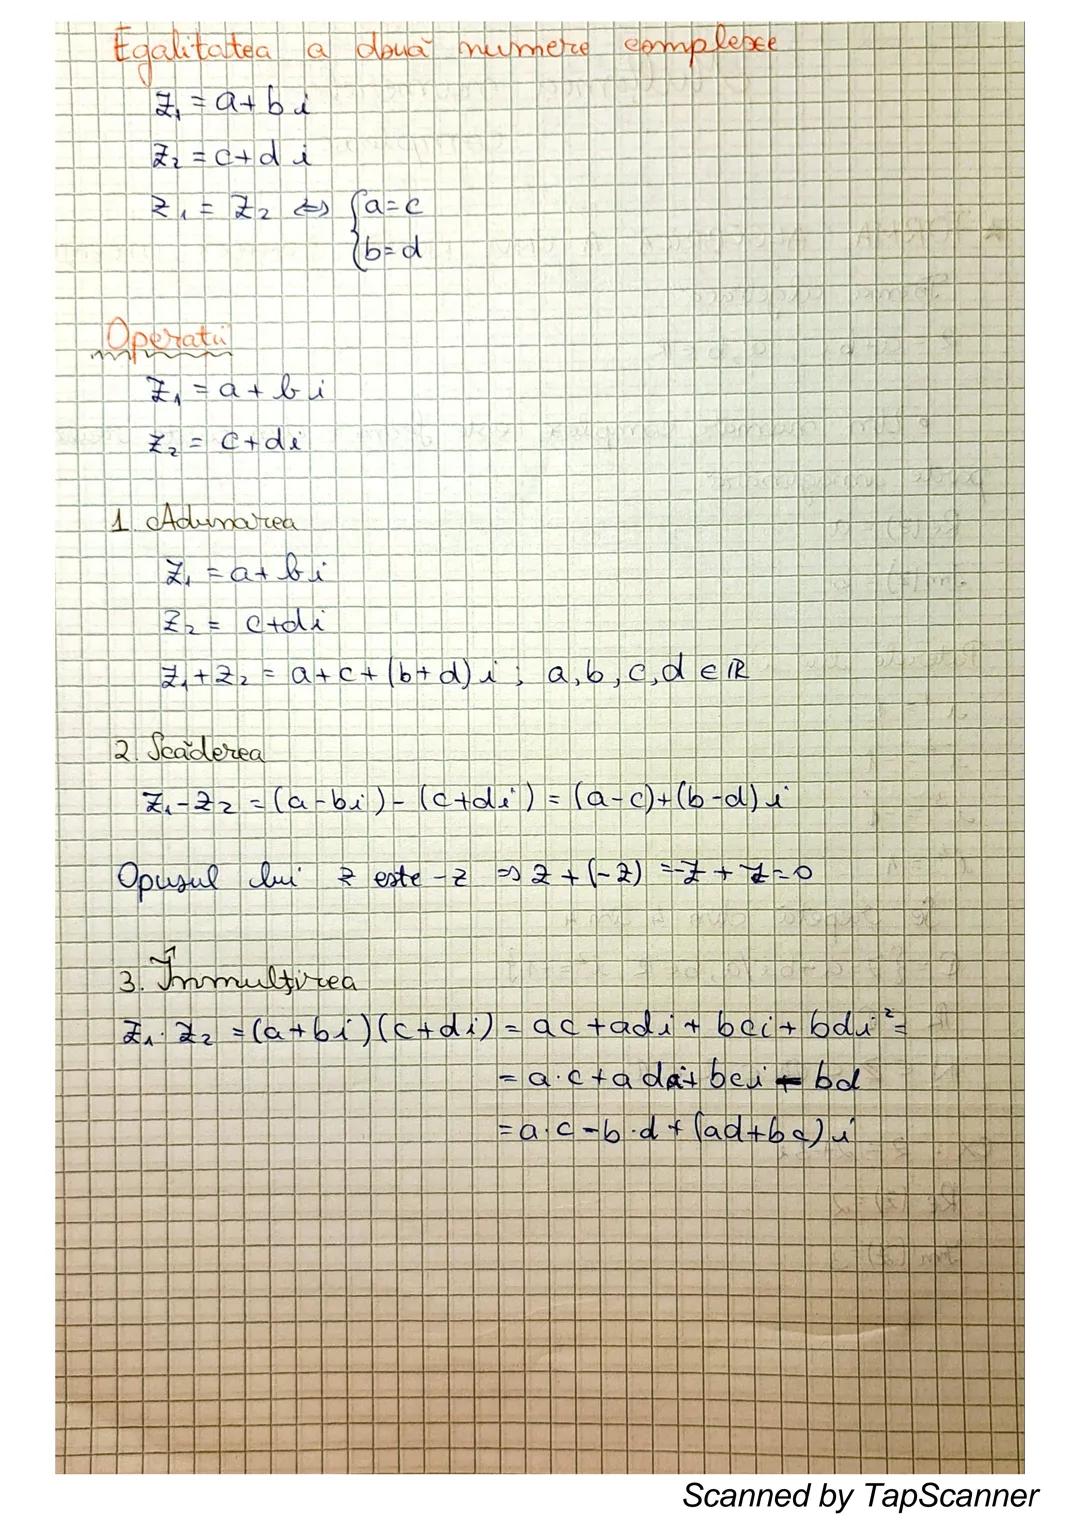 Egalitatea a două numere complexe
z₁ = a + b i
z₂ = c + d i
z₁ = z₂ ⇔ { a = c
{ b = d
Operatii
z₁ = a + b i
z₂ = c + di
1. Adunarea
z₁ = a + b i
z₂ = c + di
z₁ + z₂ = a + c + (b + d) i ; a, b, c, d ∈ ℝ
2. Scăderea
z₁ - z₂ = (a - bi) - (c + di) = (a - c) + (b - d) i
Opusul lui z este -z ⇒ z + (-z) = -z + z = 0
3. Înmulțirea
z₁ · z₂ = (a + bi)(c + di) = ac + adi + bci + bdi² =
= a·c + adi + bci - bd
= a·c - b·d + (ad + bc) i
Scanned by TapScanner